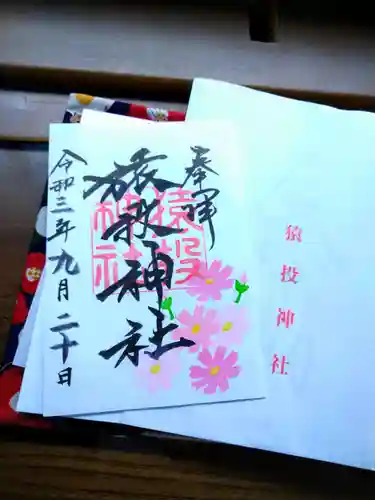 奉拝
猿投神社
猿投神社
令和三年九月二十日
猿投神社